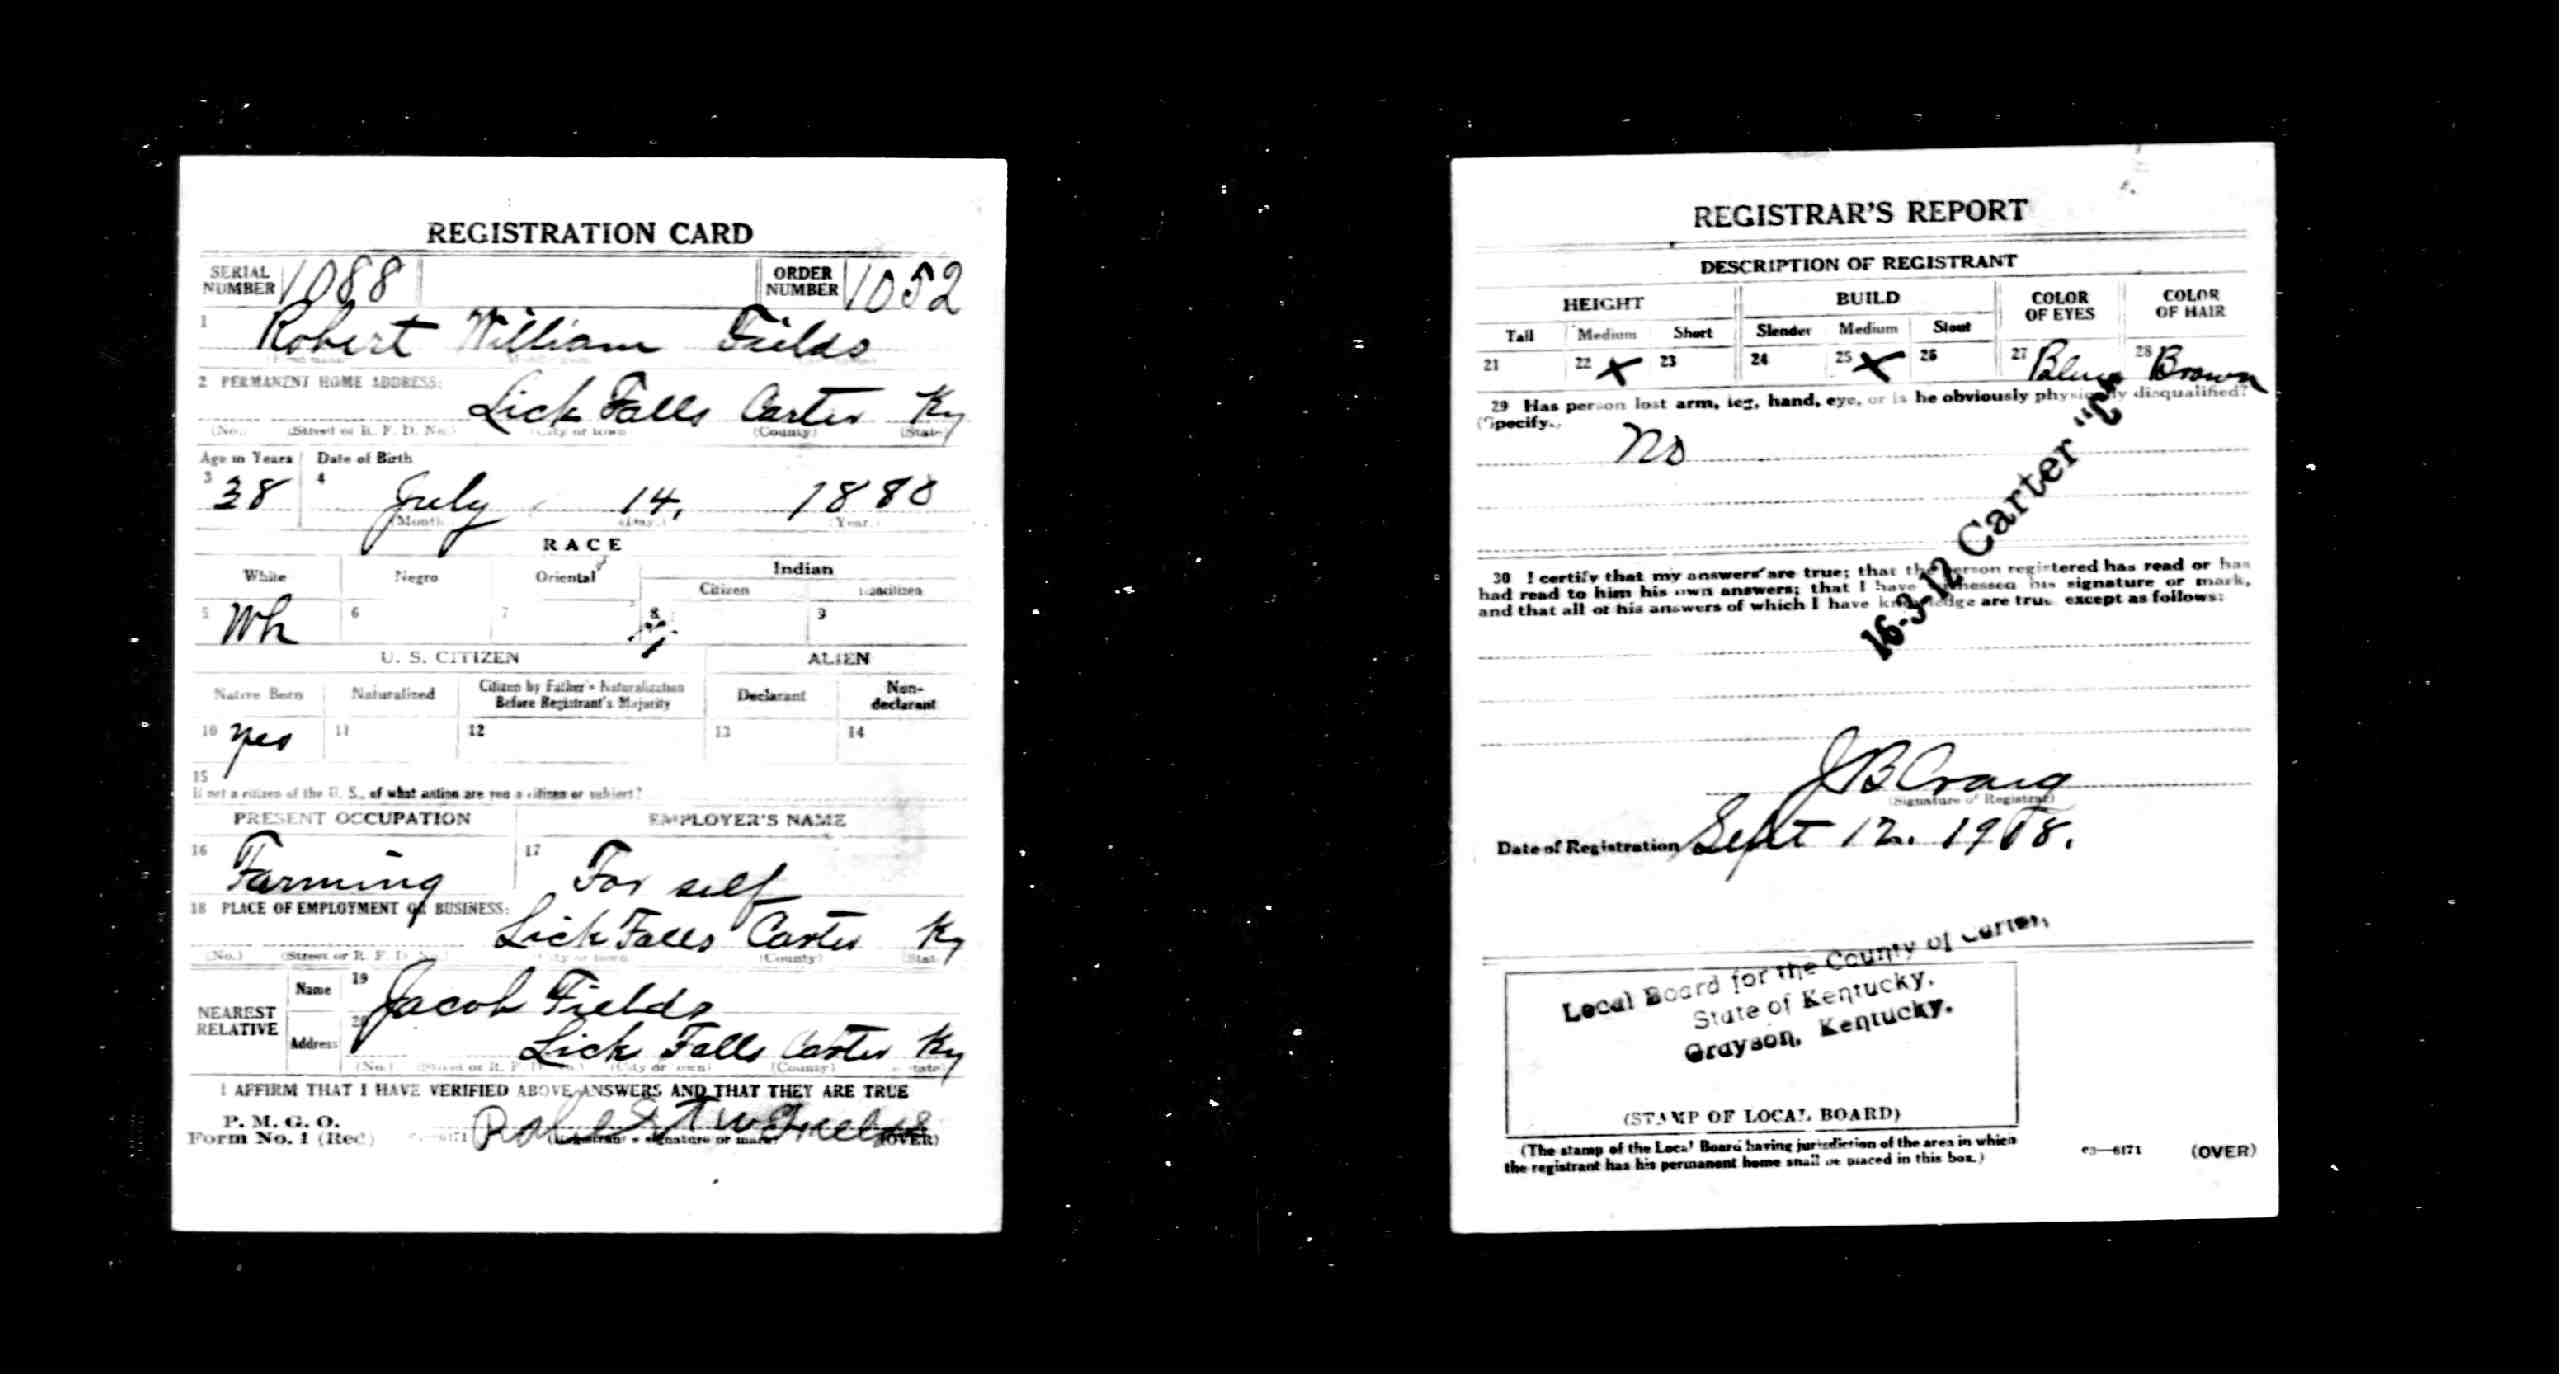 REGISTRATION CARD
SERIAL NUMBER 1088 ORDER NUMBER 1052
1 Robert William Fields
2 PERMANENT HOME ADDRESS:
Lick Falls Carter Ky
(No.) (Street or R. F. D. No.) (City or town) (County) (State)
Age in Years Date of Birth
3 38 4 July 14, 1880
(Month) (Day.) (Year.)
RACE
White Negro Oriental Indian
Citizen Noncitizen
5 Wh 6 7 8 9
U. S. CITIZEN ALIEN
Native Born Naturalized Citizen by Father's Naturalization Before Registrant's Majority Declarant Non-declarant
10 yes 11 12 13 14
15
If not a citizen of the U. S., of what nation are you a citizen or subject?
PRESENT OCCUPATION EMPLOYER'S NAME
16 Farming 17 For self
18 PLACE OF EMPLOYMENT OR BUSINESS:
Lick Falls Carter Ky
(No.) (Street or R. F. D. No.) (City or town) (County) (State)
NEAREST RELATIVE Name 19 Jacob Fields
Address 20 Lick Falls Carter Ky
(No.) (Street or R. F. D. No.) (City or town) (County) (State)
I AFFIRM THAT I HAVE VERIFIED ABOVE ANSWERS AND THAT THEY ARE TRUE
P. M. G. O.
Form No. 1 (Red) (Registrant's signature or mark) (OVER)
REGISTRAR'S REPORT
DESCRIPTION OF REGISTRANT
HEIGHT BUILD COLOR OF EYES COLOR OF HAIR
Tall Medium Short Slender Medium Stout
21 22 X 23 24 25 X 26 27 Blue 28 Brown
29 Has person lost arm, leg, hand, eye, or is he obviously physically disqualified?
(Specify.)
No
16-3-12 Carter "C"
30 I certify that my answers are true; that the person registered has read or has
had read to him his own answers; that I have witnessed his signature or mark,
and that all of his answers of which I have knowledge are true except as follows:
J B Craig
(Signature of Registrar)
Date of Registration Sept 12. 1918.
Local Board for the County of Carter,
State of Kentucky.
Grayson, Kentucky.
(STAMP OF LOCAL BOARD)
(The stamp of the Local Board having jurisdiction of the area in which
the registrant has his permanent home shall be placed in this box.)
03—6171 (OVER)